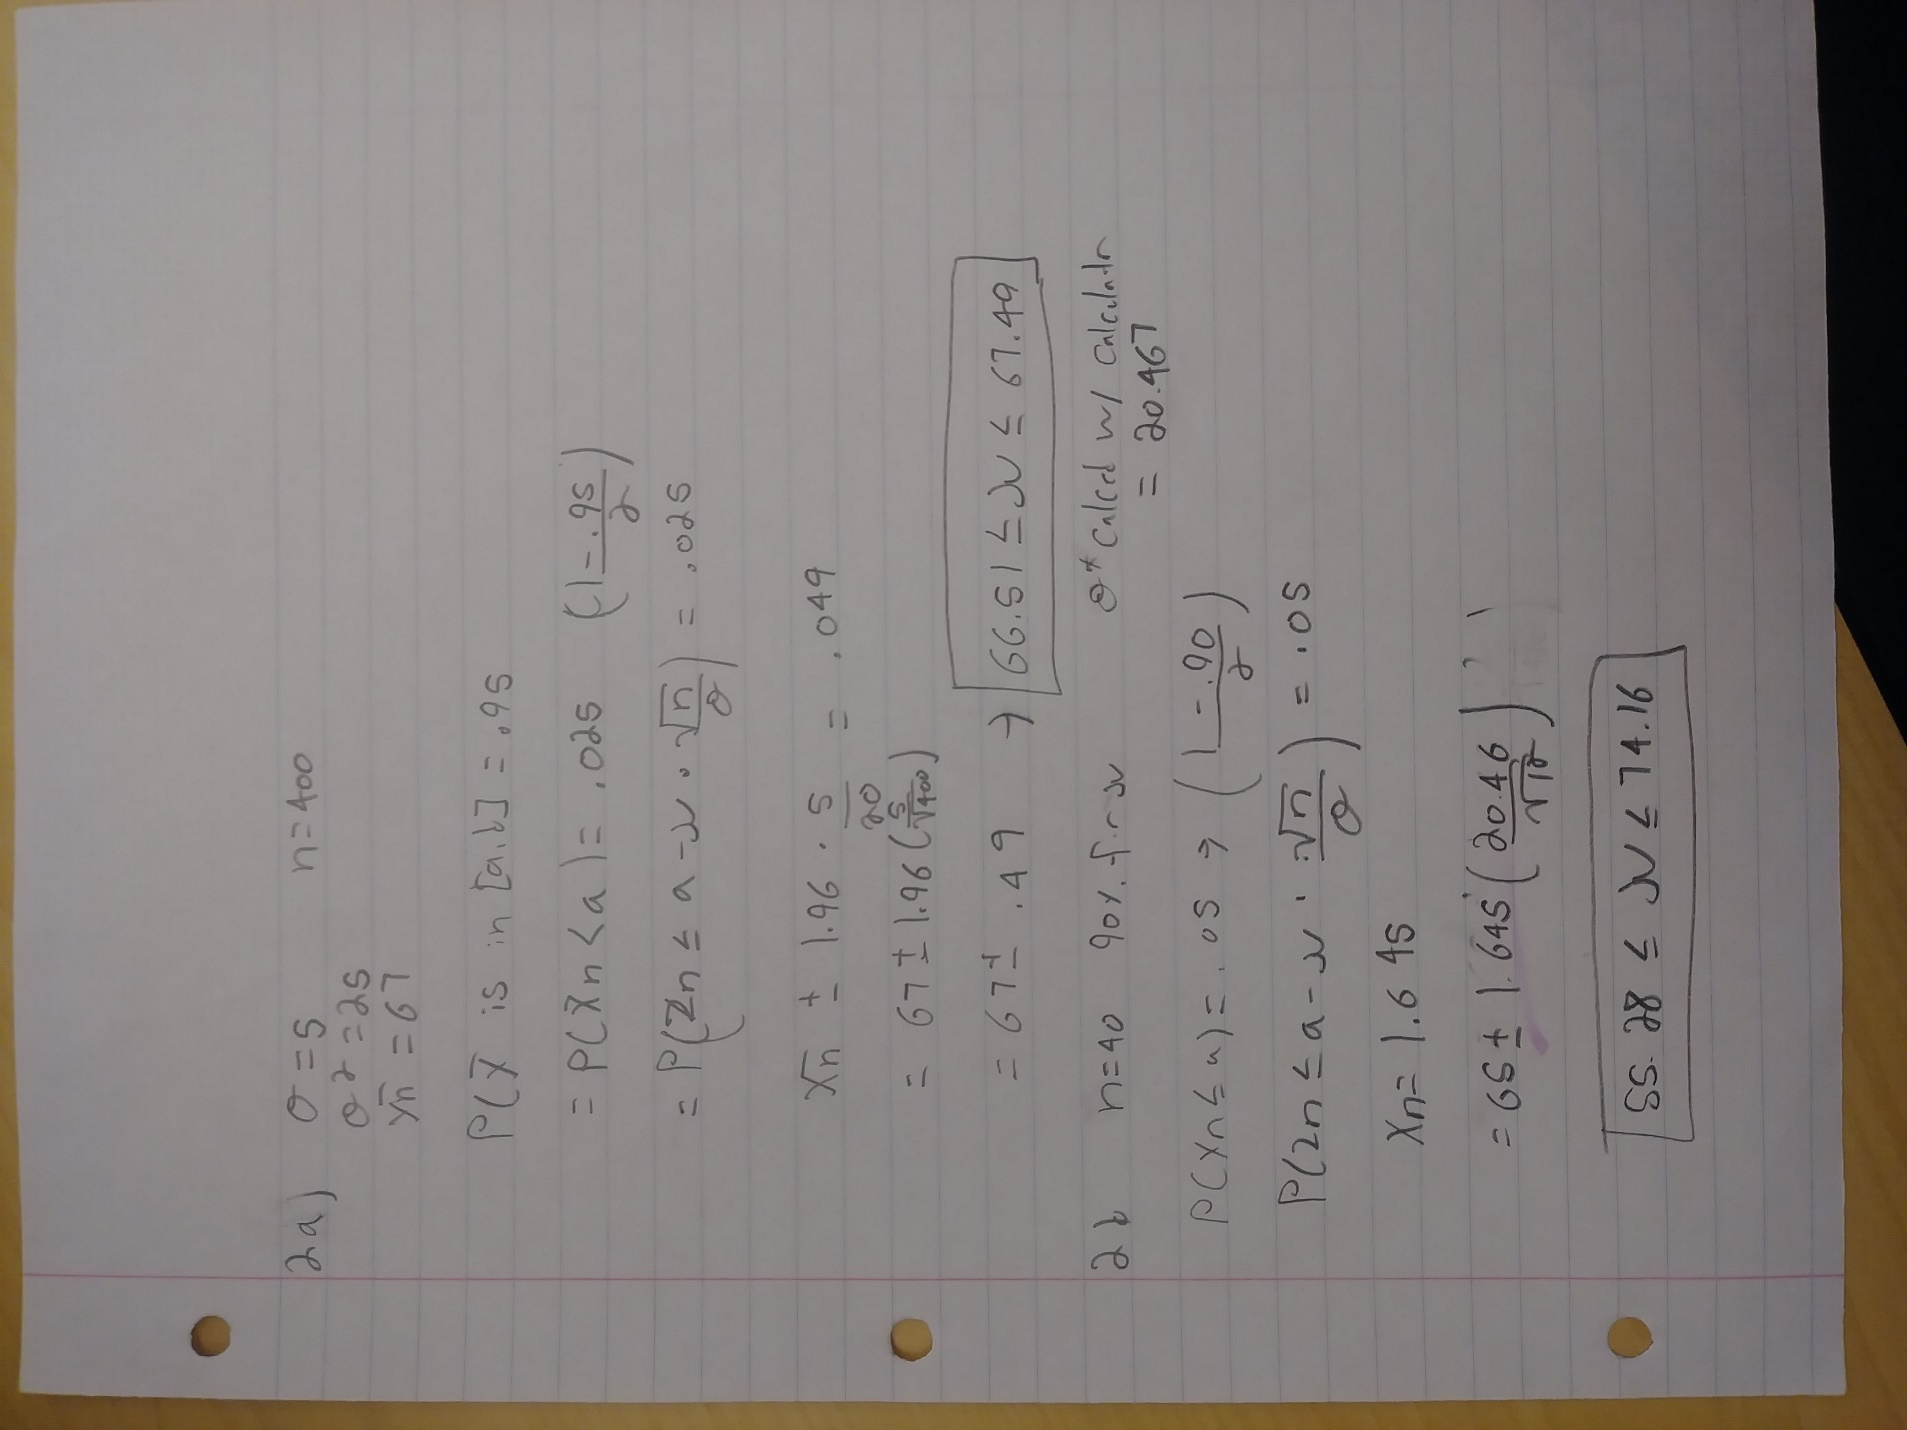 2a) σ=5 n=400
σ²=25
x̄n=67
P(x̄ is in [a,b]=.95
=P(x̄n<a)=.025 (1-.95/2)
=P(Zn≤a-μ·√n/σ)=.025
x̄n ± 1.96·5/20 = .049
= 67±1.96(5/√400)
= 67± .49 → 66.51≤μ≤67.49
2b n=40 90% for μ σ* Calced w/ Calculatr
= 20.467
P(Xn≤a)=.05 → (1-.90/2)
P(Zn≤a-μ·√n/σ)=.05
Xn=1.645
=65±1.645(20.46/√12)
55.28≤μ≤74.16